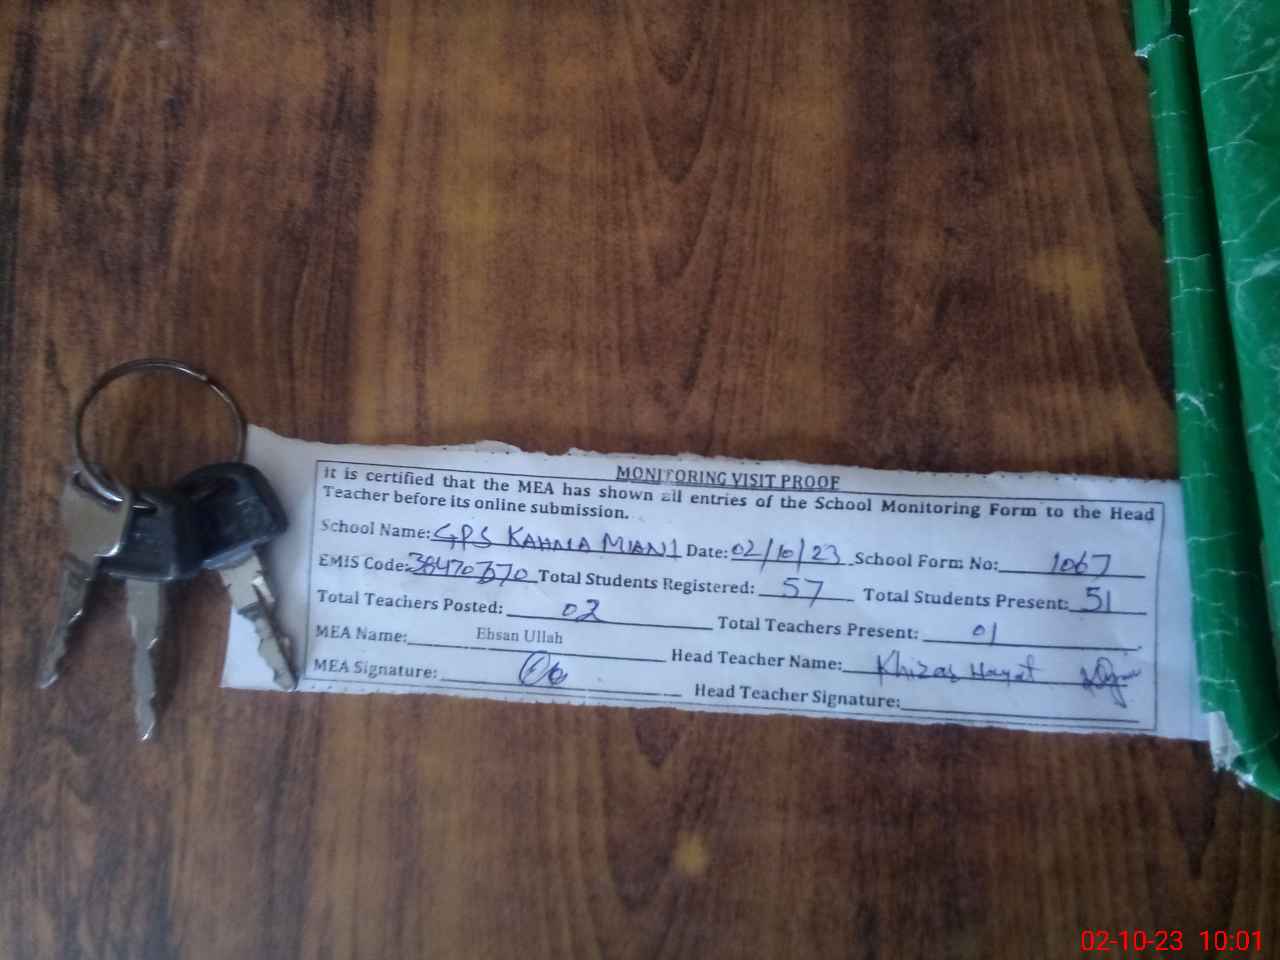 MONITORING VISIT PROOF
it is certified that the MEA has shown all entries of the School Monitoring Form to the Head
Teacher before its online submission.
School Name: GPS KAHNA MIANI Date: 02/10/23 School Form No: 1067
EMIS Code: Total Students Registered: 57 Total Students Present: 51
Total Teachers Posted: 02 Total Teachers Present: 01
MEA Name: Ehsan Ullah Head Teacher Name: Khizar Hayat
MEA Signature: Head Teacher Signature:
02-10-23 10:01